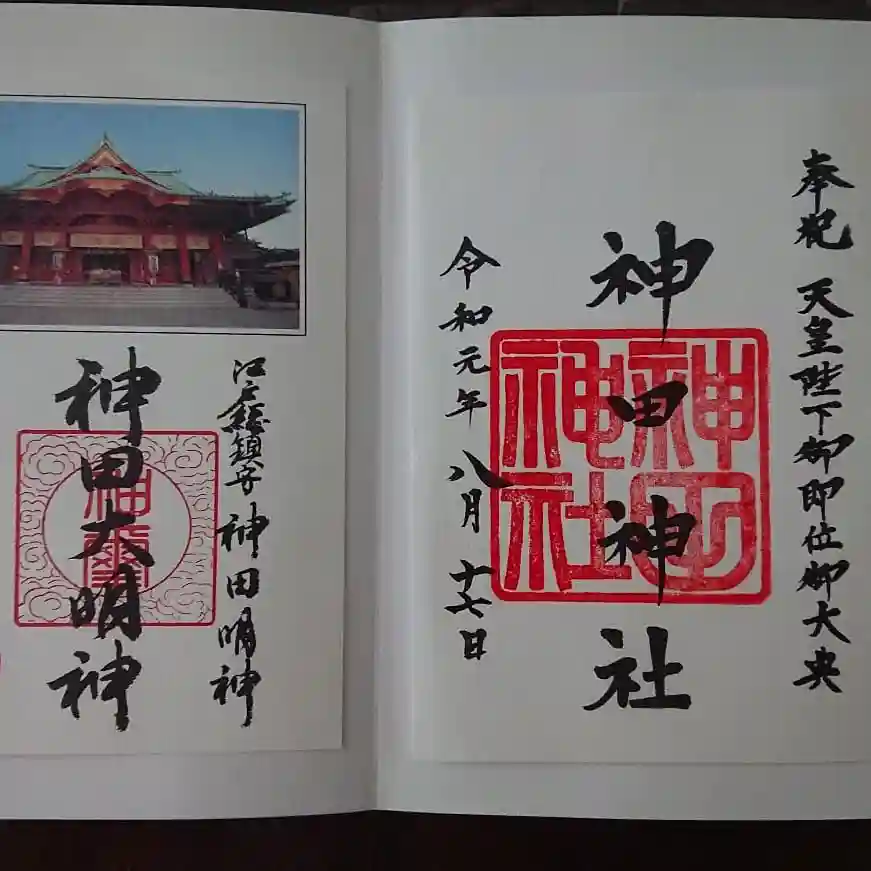 奉祝 天皇陛下御即位御大典
神田神社
神田神社
令和元年 八月 十七日
江戸総鎮守 神田明神
神田大明神